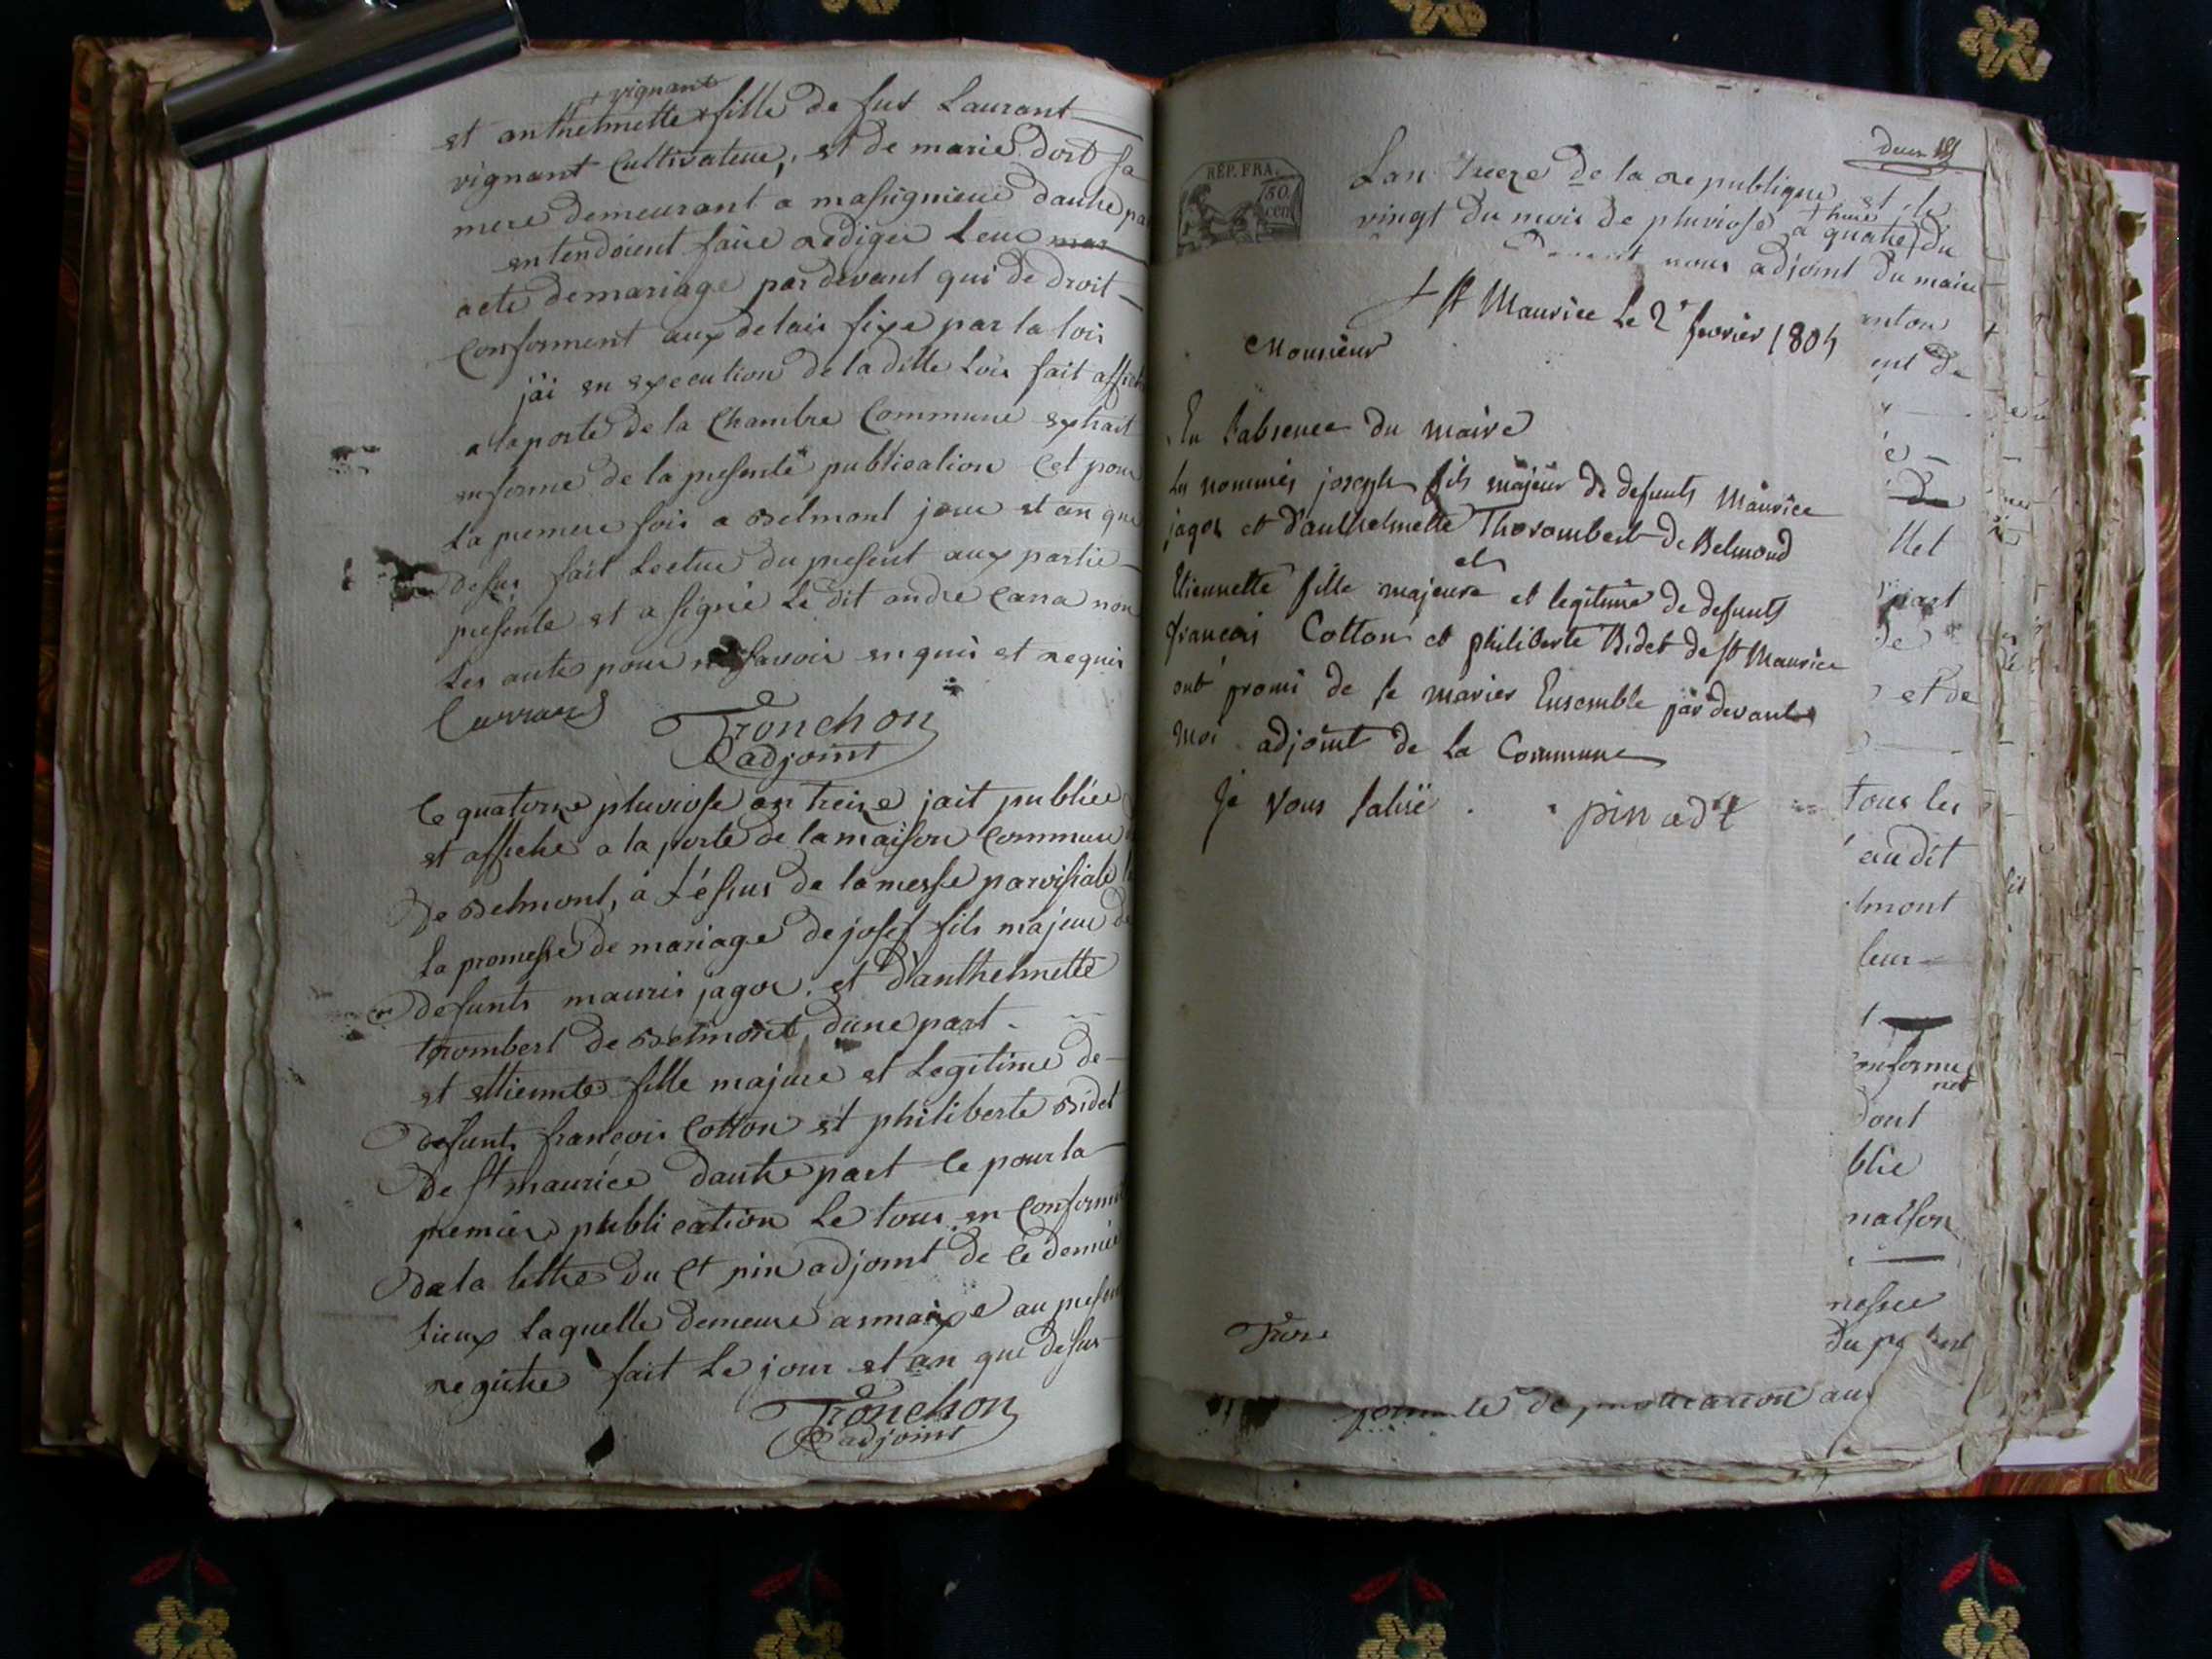 + vignant
et anthelmette + fille de fut Laurant
vignant Cultivateur, et de marie dort sa
mere demeurant a massignieu dautre par
entendoient faire rediger Leur mar
acte de mariage par devant qui de droit
conforment aux delais fixe par la loix
j'ai en execution de la ditte Loix fait affiche
a la porte de la Chambre Commune extrait
en forme de la presente publication Cet pour
La premiere fois a Belmont jour et an que
desus fait Lectur du present aux partie
presente et a signé Le dit andre Cana non
Les autre pour ne savoir en quis et requis
Tronchon
adjoint
Ce quatorze pluviose an treize jait publiée
et affiche a la porte de la maison Commune
de Belmont, à L'éssus de la messe paroissiale
la promesse de mariage de josef fils majeur de
defunts mauris jagou et d'anthelmette
trombert de Belmont dune part
et ettiennte fille majeure et Legitime de
defunts françois Cotton et philiberte Bidet
de St maurice dautre part Ce pour la
premier publication Le tous en Conformi
de la lettre du Ct pin adjoint de Ce dernier
Lieux Laquelle demeure annaixe au presen
registre fait Le jour et an que desus
Tronchon
adjoint
REP. FRA.
50
cen
Lan treeze de la republique et le
vingt du mois de pluviose a quatre + hure du
nous adjoint du maire
St Maurice Le 2e fevrier 1805
Monsieur
En L'absence du maire
Les nommés joseph fils majeur de defunts Maurice
jagou et d'anthelmette Thorombert de Belmond
et
Etiennette fille majeure et legitime de defunts
françois Cotton et philiberte Bidet de St Maurice
ont promi de se marier Ensemble par devant
moi adjoint de La Commune
Je vous salüe . pin adt
anton
ent de
de
llet
part
de
et de
tous les
audit
lmont
leur
onforme
dont
blie
maison
messe
du present
de publication au